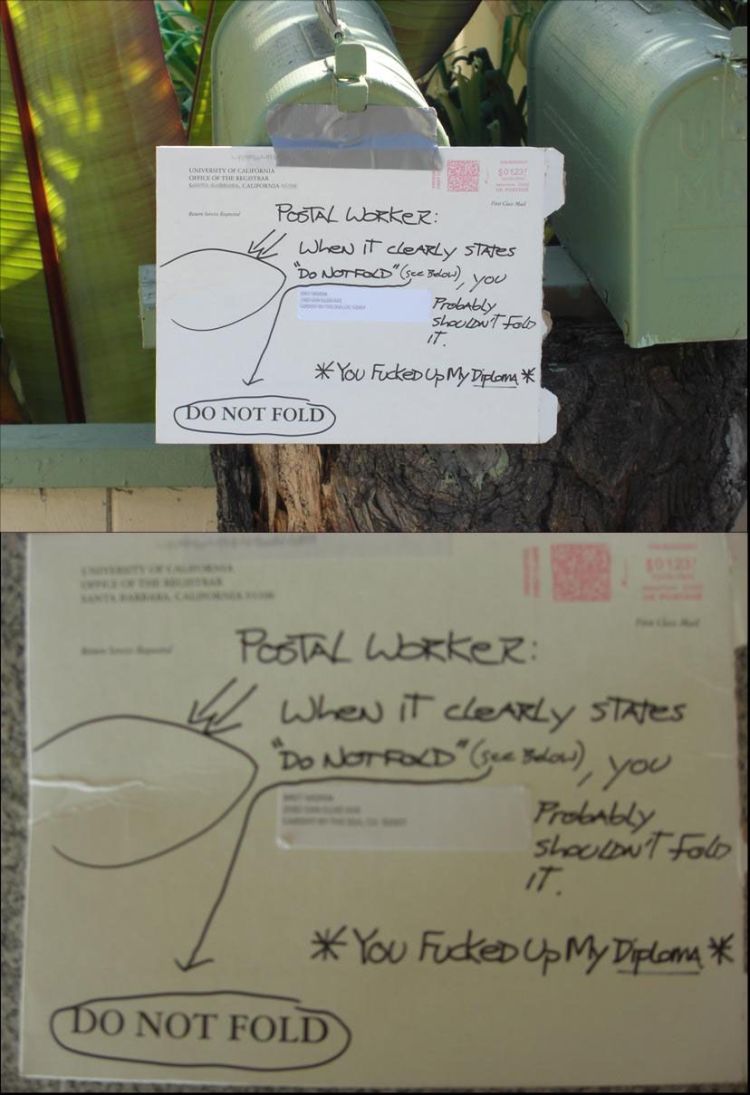 UNIVERSITY OF CALIFORNIA
OFFICE OF THE REGISTRAR
SANTA BARBARA, CALIFORNIA
$0123
US POSTAGE
First Class Mail
Return Service Requested
POSTAL WORKER:
WHEN IT CLEARLY STATES
"DO NOT FOLD" (see Below), YOU
Probably
shouldn't fold
IT.
*You Fucked Up My Diploma*
DO NOT FOLD
UNIVERSITY OF CALIFORNIA
OFFICE OF THE REGISTRAR
SANTA BARBARA, CALIFORNIA
$0123
US POSTAGE
First Class Mail
Return Service Requested
POSTAL WORKER:
WHEN IT CLEARLY STATES
"DO NOT FOLD" (see Below), YOU
Probably
shouldn't fold
IT.
*You Fucked Up My Diploma*
DO NOT FOLD